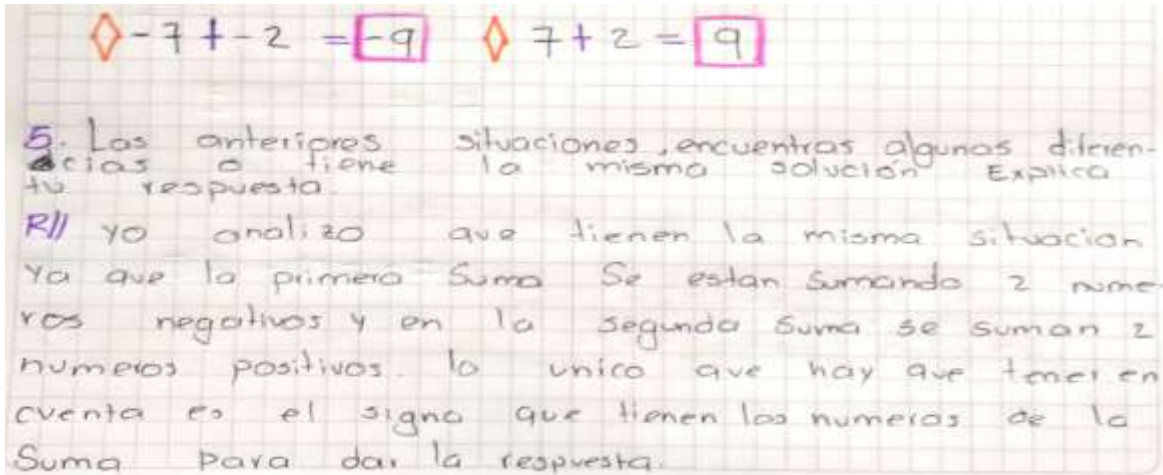 ◊ -7 + -2 = -9 ◊ 7 + 2 = 9
5. Las anteriores situaciones, encuentras algunas diferen-
cias o tiene la misma solución Explica
tu respuesta.
R// yo analizo que tienen la misma situacion
ya que la primera suma Se estan sumando 2 nume-
ros negativos y en la segunda suma se suman 2
numeros positivos. lo unico que hay que tener en
cuenta es el signo que tienen los numeros de la
Suma para dar la respuesta.